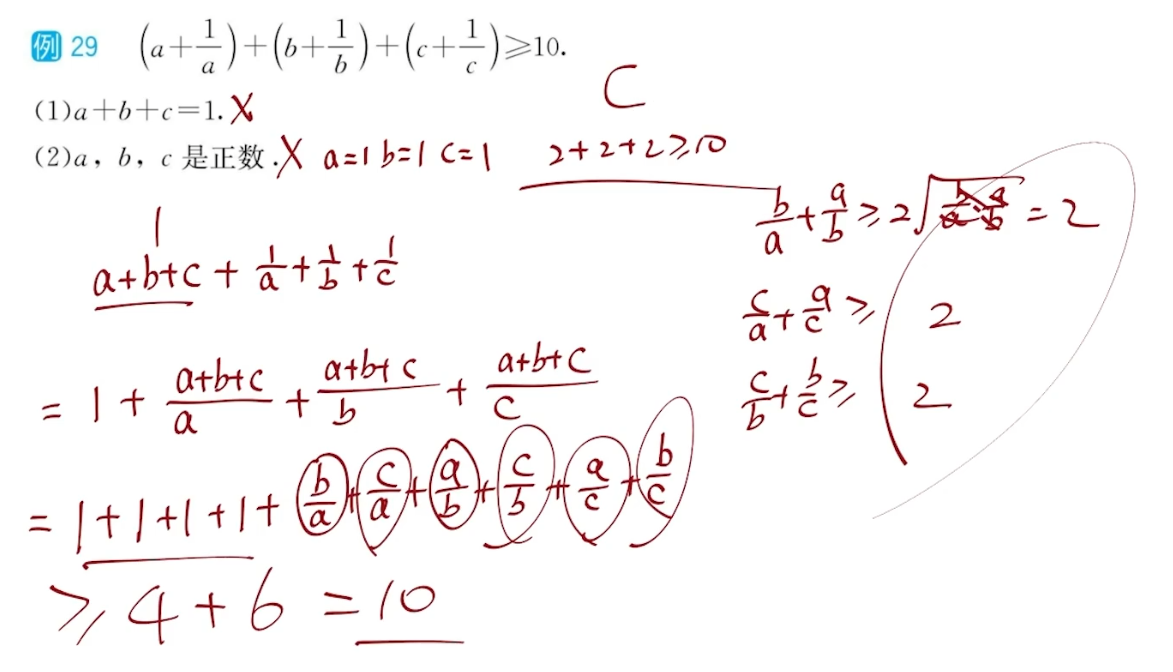 例 29 (a+1/a)+(b+1/b)+(c+1/c)⩾10.
C
(1)a+b+c=1. X
(2)a，b，c 是正数. X a=1 b=1 c=1 2+2+2⩾10
b/a + a/b ⩾ 2√(b/a·a/b) = 2
1
a+b+c + 1/a + 1/b + 1/c
c/a + a/c ⩾ 2
c/b + b/c ⩾ 2
= 1 + (a+b+c)/a + (a+b+c)/b + (a+b+c)/c
= 1+1+1+1+ b/a + c/a + a/b + c/b + a/c + b/c
⩾ 4+6 = 10